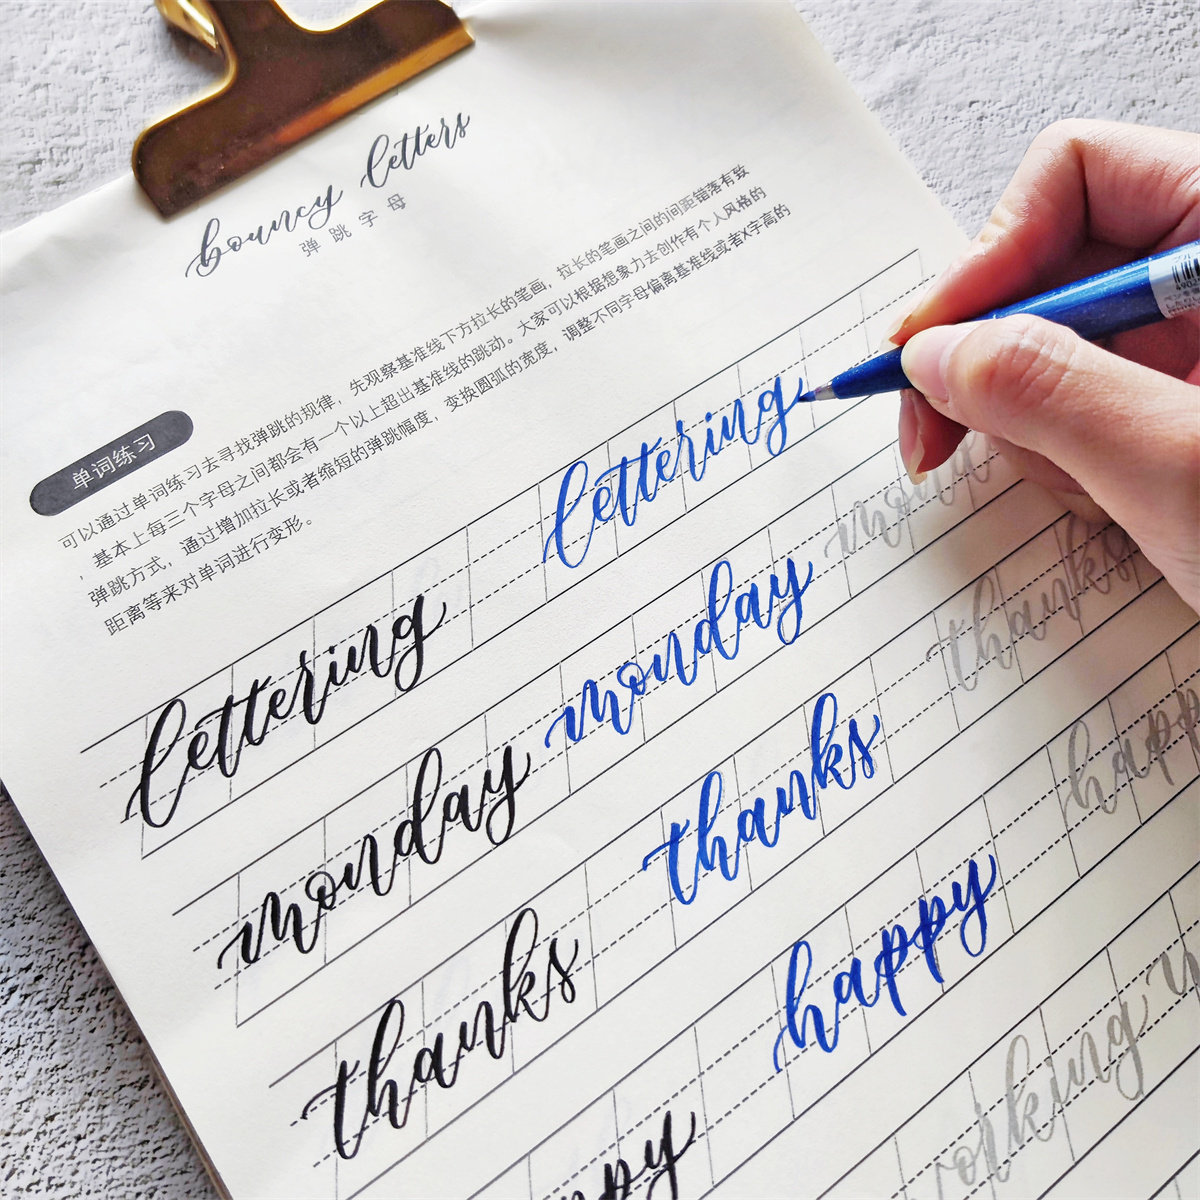 bouncy letters
弹跳字母
单词练习
可以通过单词练习去寻找弹跳的规律，先观察基准线下方拉长的笔画，拉长的笔画之间的间距错落有致
，基本上每三个字母之间都会有一个以上超出基准线的跳动。大家可以根据想象力去创作有个人风格的
弹跳方式，通过增加拉长或者缩短的弹跳幅度，变换圆弧的宽度，调整不同字母偏离基准线或者X字高的
距离等来对单词进行变形。
lettering lettering
monday monday mond
thanks thanks thanks
ppy happy happy
working